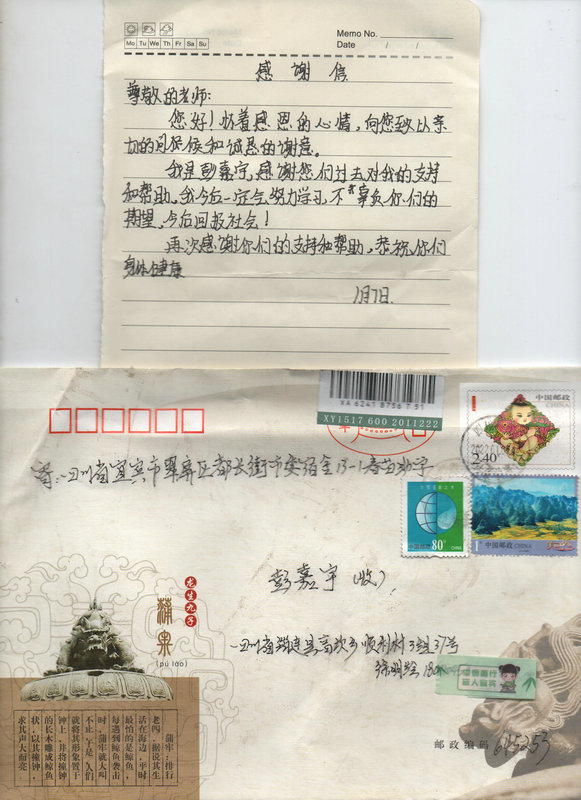 Memo No.
Mo Tu We Th Fr Sa Su
Date / /
感谢信
尊敬的老师:
您好!怀着感恩的心情,向您致以亲
切的问候和诚恳的谢意。
我是彭嘉宇,感谢您们过去对我的支持
和帮助。我今后一定会努力学习,不辜负你们的
期望,今后回报社会!
再次感谢你们的支持和帮助,恭祝你们
身体健康
1月7日
XA 6241 8756 7 51
XY1517 600 2011222
中国邮政
CHINA
2.40
寄:四川省宜宾市翠屏区都长街市安宿舍13-1春苗助学
中国邮政 80分 CHINA
中国邮政 CHINA
彭嘉宇(收)
四川省 县高坎乡顺利村3组31号
龙生九子
蒲牢
(pú láo)
蒲牢,排行
老四,据说其生
活在海边,平时
最怕的是鲸鱼,
每遇到鲸鱼袭击
时,蒲牢就大叫
不止。于是,人们
就将其形象置于
钟上,并将撞钟
的长木雕成鲸鱼
状,以其撞钟,
求其声大而亮
邮政编码 645253